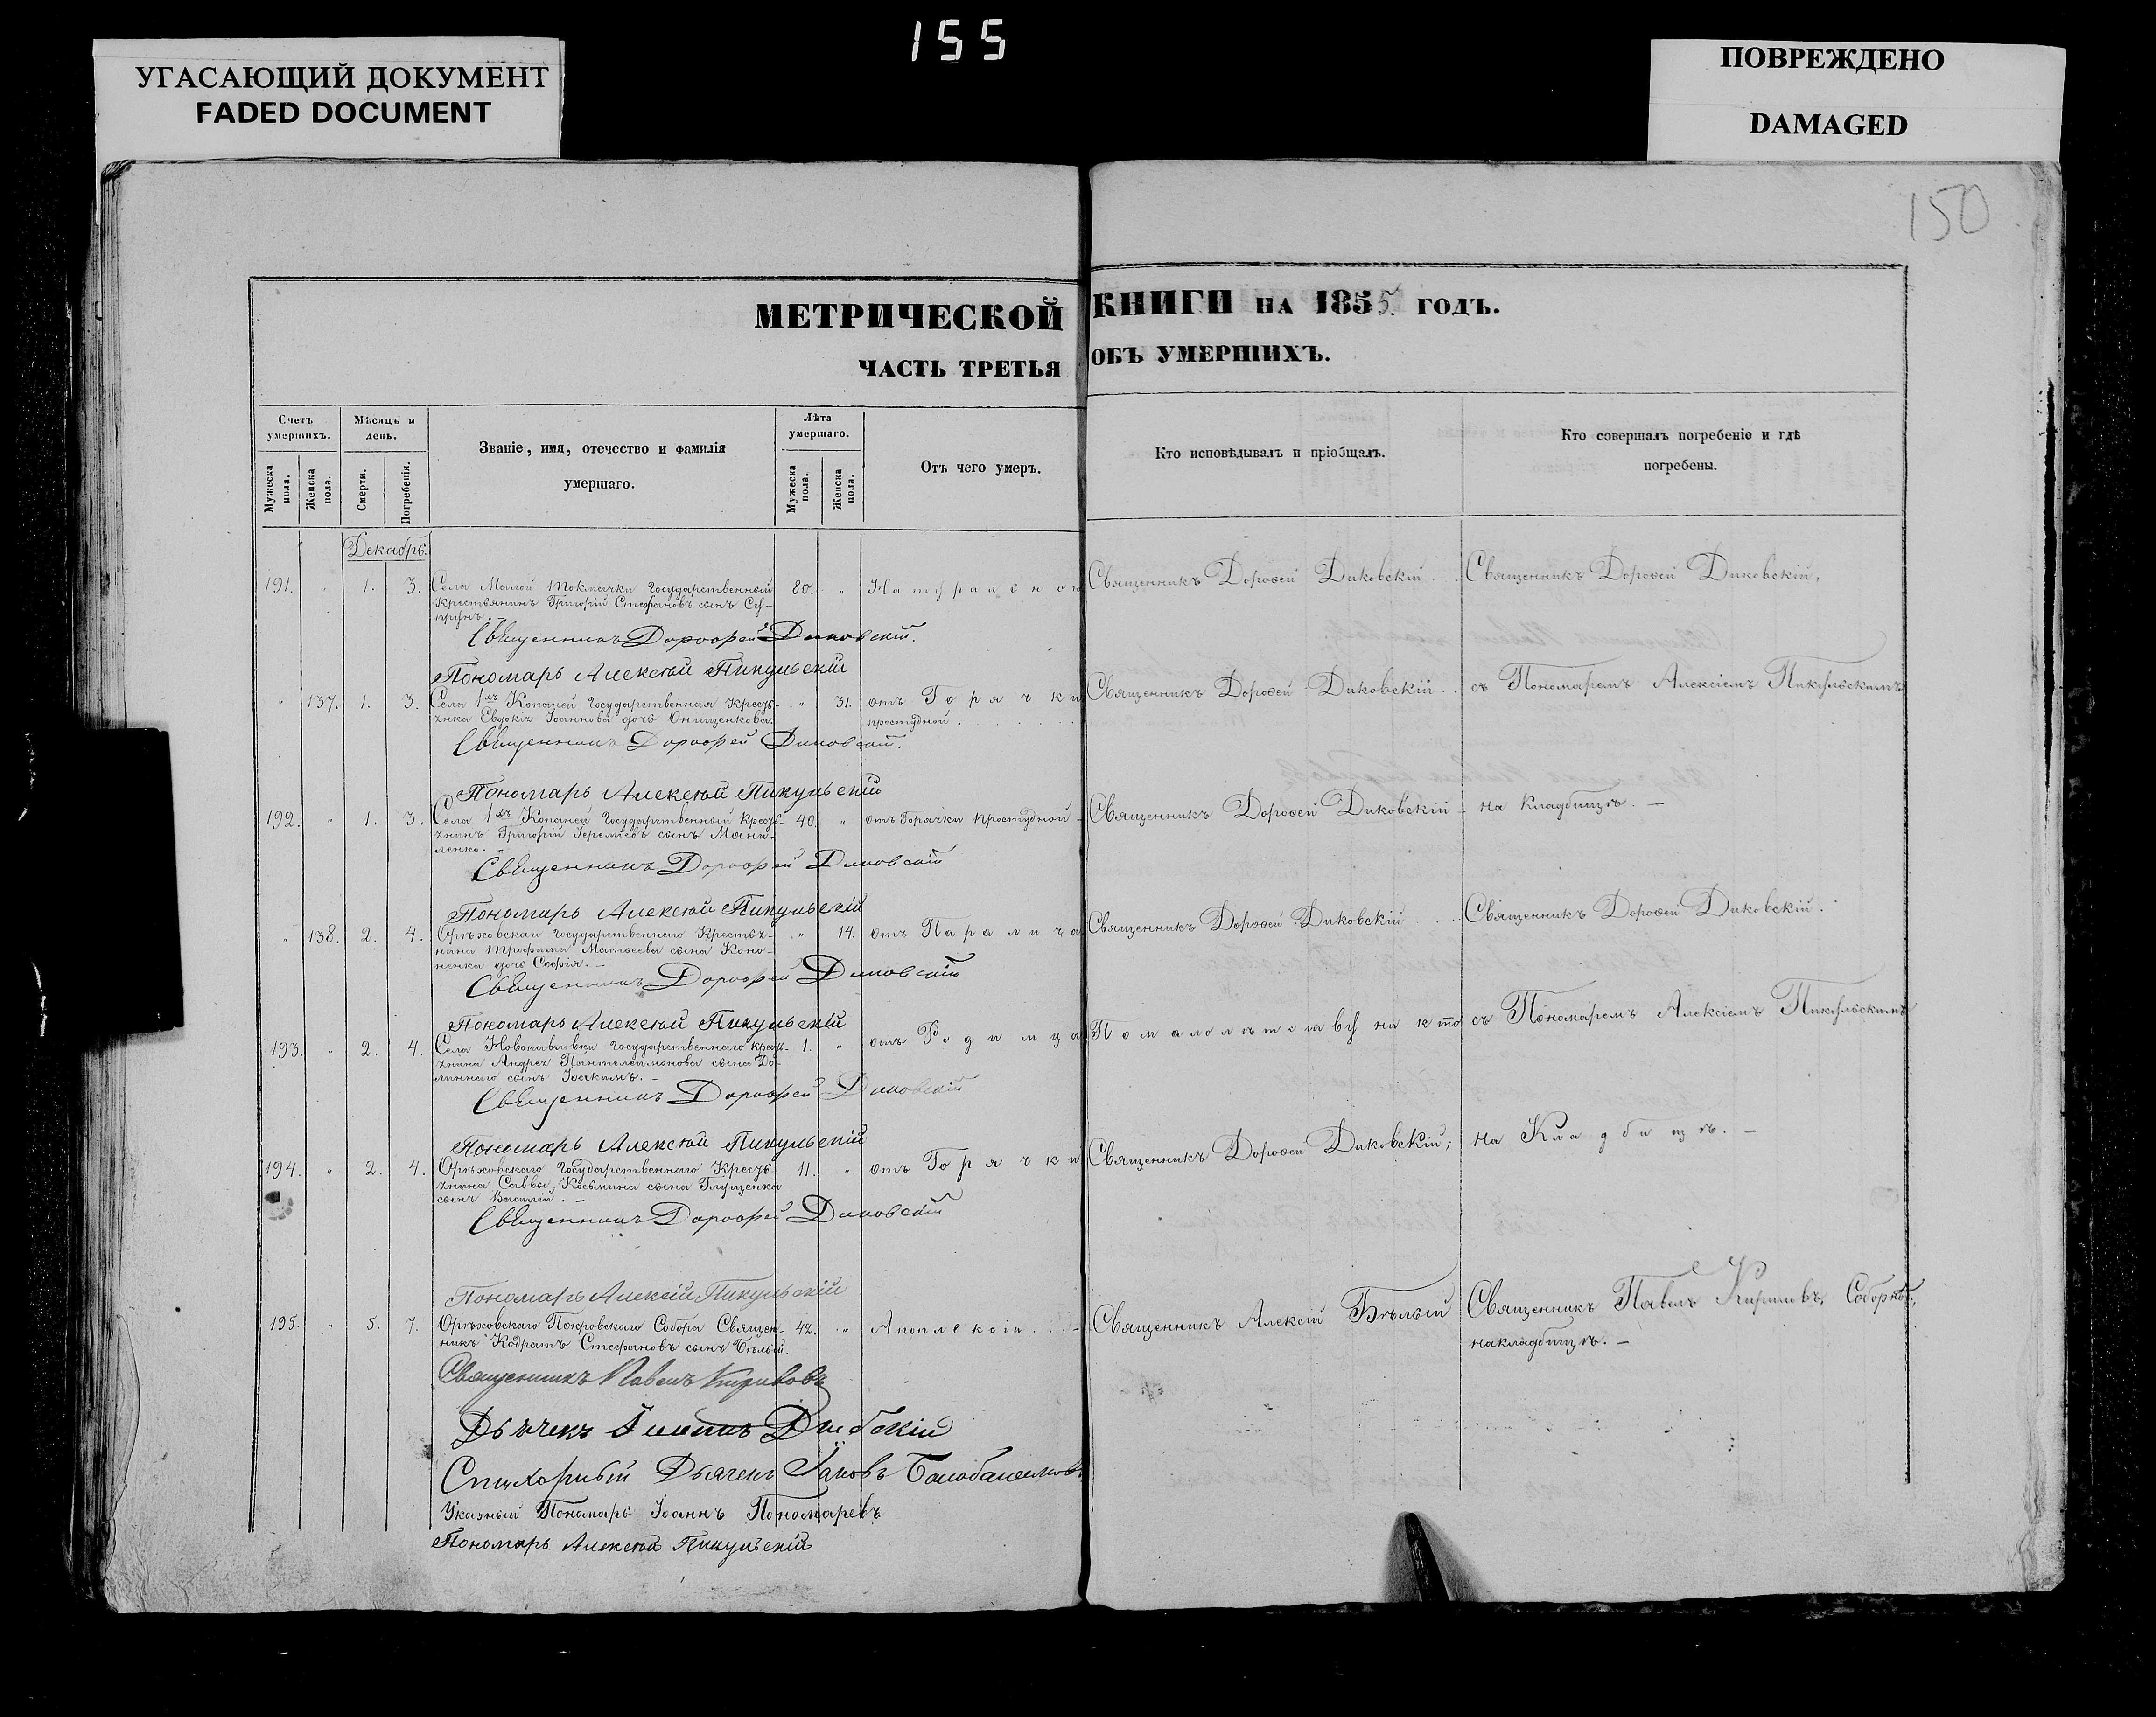 155
УГАСАЮЩИЙ ДОКУМЕНТ
FADED DOCUMENT
ПОВРЕЖДЕНО
DAMAGED
150
МЕТРИЧЕСКОЙ КНИГИ НА 1855. ГОДЪ.
ЧАСТЬ ТРЕТЬЯ ОБЪ УМЕРШИХЪ.
Счетъ умершихъ.
Мужеска пола.
Женска пола.
Мѣсяцъ и день.
Смерти.
Погребенія.
Званіе, имя, отечество и фамилія
умершаго.
Лѣта умершаго.
Мужеска пола.
Женска пола.
Отъ чего умеръ.
Кто исповѣдывалъ и пріобщалъ.
Кто совершалъ погребеніе и гдѣ
погребены.
Декабрь.
191. " 1. 3. Села Малой Токмачки Государственный 80. " Натуральною Священникъ Дороѳей Диковскій Священникъ Дороѳей Диковскій,
Крестьянинъ Григорій Стефановъ сынъ
Священникъ Дорофей Диковскій.
Пономарь Алексѣй Пикульскій
" 137. 1. 3. Села Копаней Государственная Кресть- " 31. отъ Горячки Священникъ Дороѳей Диковскій съ Пономаремъ Алексіемъ Пикульскимъ
янка Евдокія Іоаннова дочь Онищенкова. простудной.
Священникъ Дорофей Диковскій.
Пономарь Алексѣй Пикульскій
192. " 1. 3. Села Копаней Государственный Кресть- 40. " отъ Горячки простудной Священникъ Дороѳей Диковскій на Кладбищѣ. —
янинъ Григорій Іереміевъ сынъ Мани-
ленко. —
Священникъ Дорофей Диковскій
Пономарь Алексѣй Пикульскій
" 138. 2. 4. Орѣховскаго Государственнаго Крестья- " 14. отъ Паралича Священникъ Дороѳей Диковскій Священникъ Дороѳей Диковскій.
нина Трофима Матѳеева сына Коно-
ненка дочь Софія. —
Священникъ Дорофей Диковскій
Пономарь Алексѣй Пикульскій
193. " 2. 4. Села Новопавловки Государственнаго Кресть- 1. " отъ Родимца По малолѣтству никто съ Пономаремъ Алексіемъ Пикульскимъ
янина Андрея Пантелеимонова сына До-
линнаго сынъ Іоакимъ. —
Священникъ Дорофей Диковскій
Пономарь Алексѣй Пикульскій
194. " 2. 4. Орѣховскаго Государственнаго Кресть- 11. " отъ Горячки Священникъ Дороѳей Диковскій; на Кладбищѣ. —
янина Саввы Косьмина сына Глущенка
сынъ Василій. —
Священникъ Дорофей Диковскій
Пономарь Алексѣй Пикульскій
195. " 5. 7. Орѣховскаго Покровскаго Собора Священ- 42. " Апоплексіи. Священникъ Алексій Бѣлый Священникъ Павелъ Кириловъ, Соборнѣ,
никъ Кодратъ Стефановъ сынъ Бѣлый. на кладбищѣ. —
Священникъ Павелъ Кириловъ
Дьячекъ
Стихарный Дьячекъ Іаковъ
Указный Пономарь Іоаннъ Пономаревъ
Пономарь Алексѣй Пикульскій